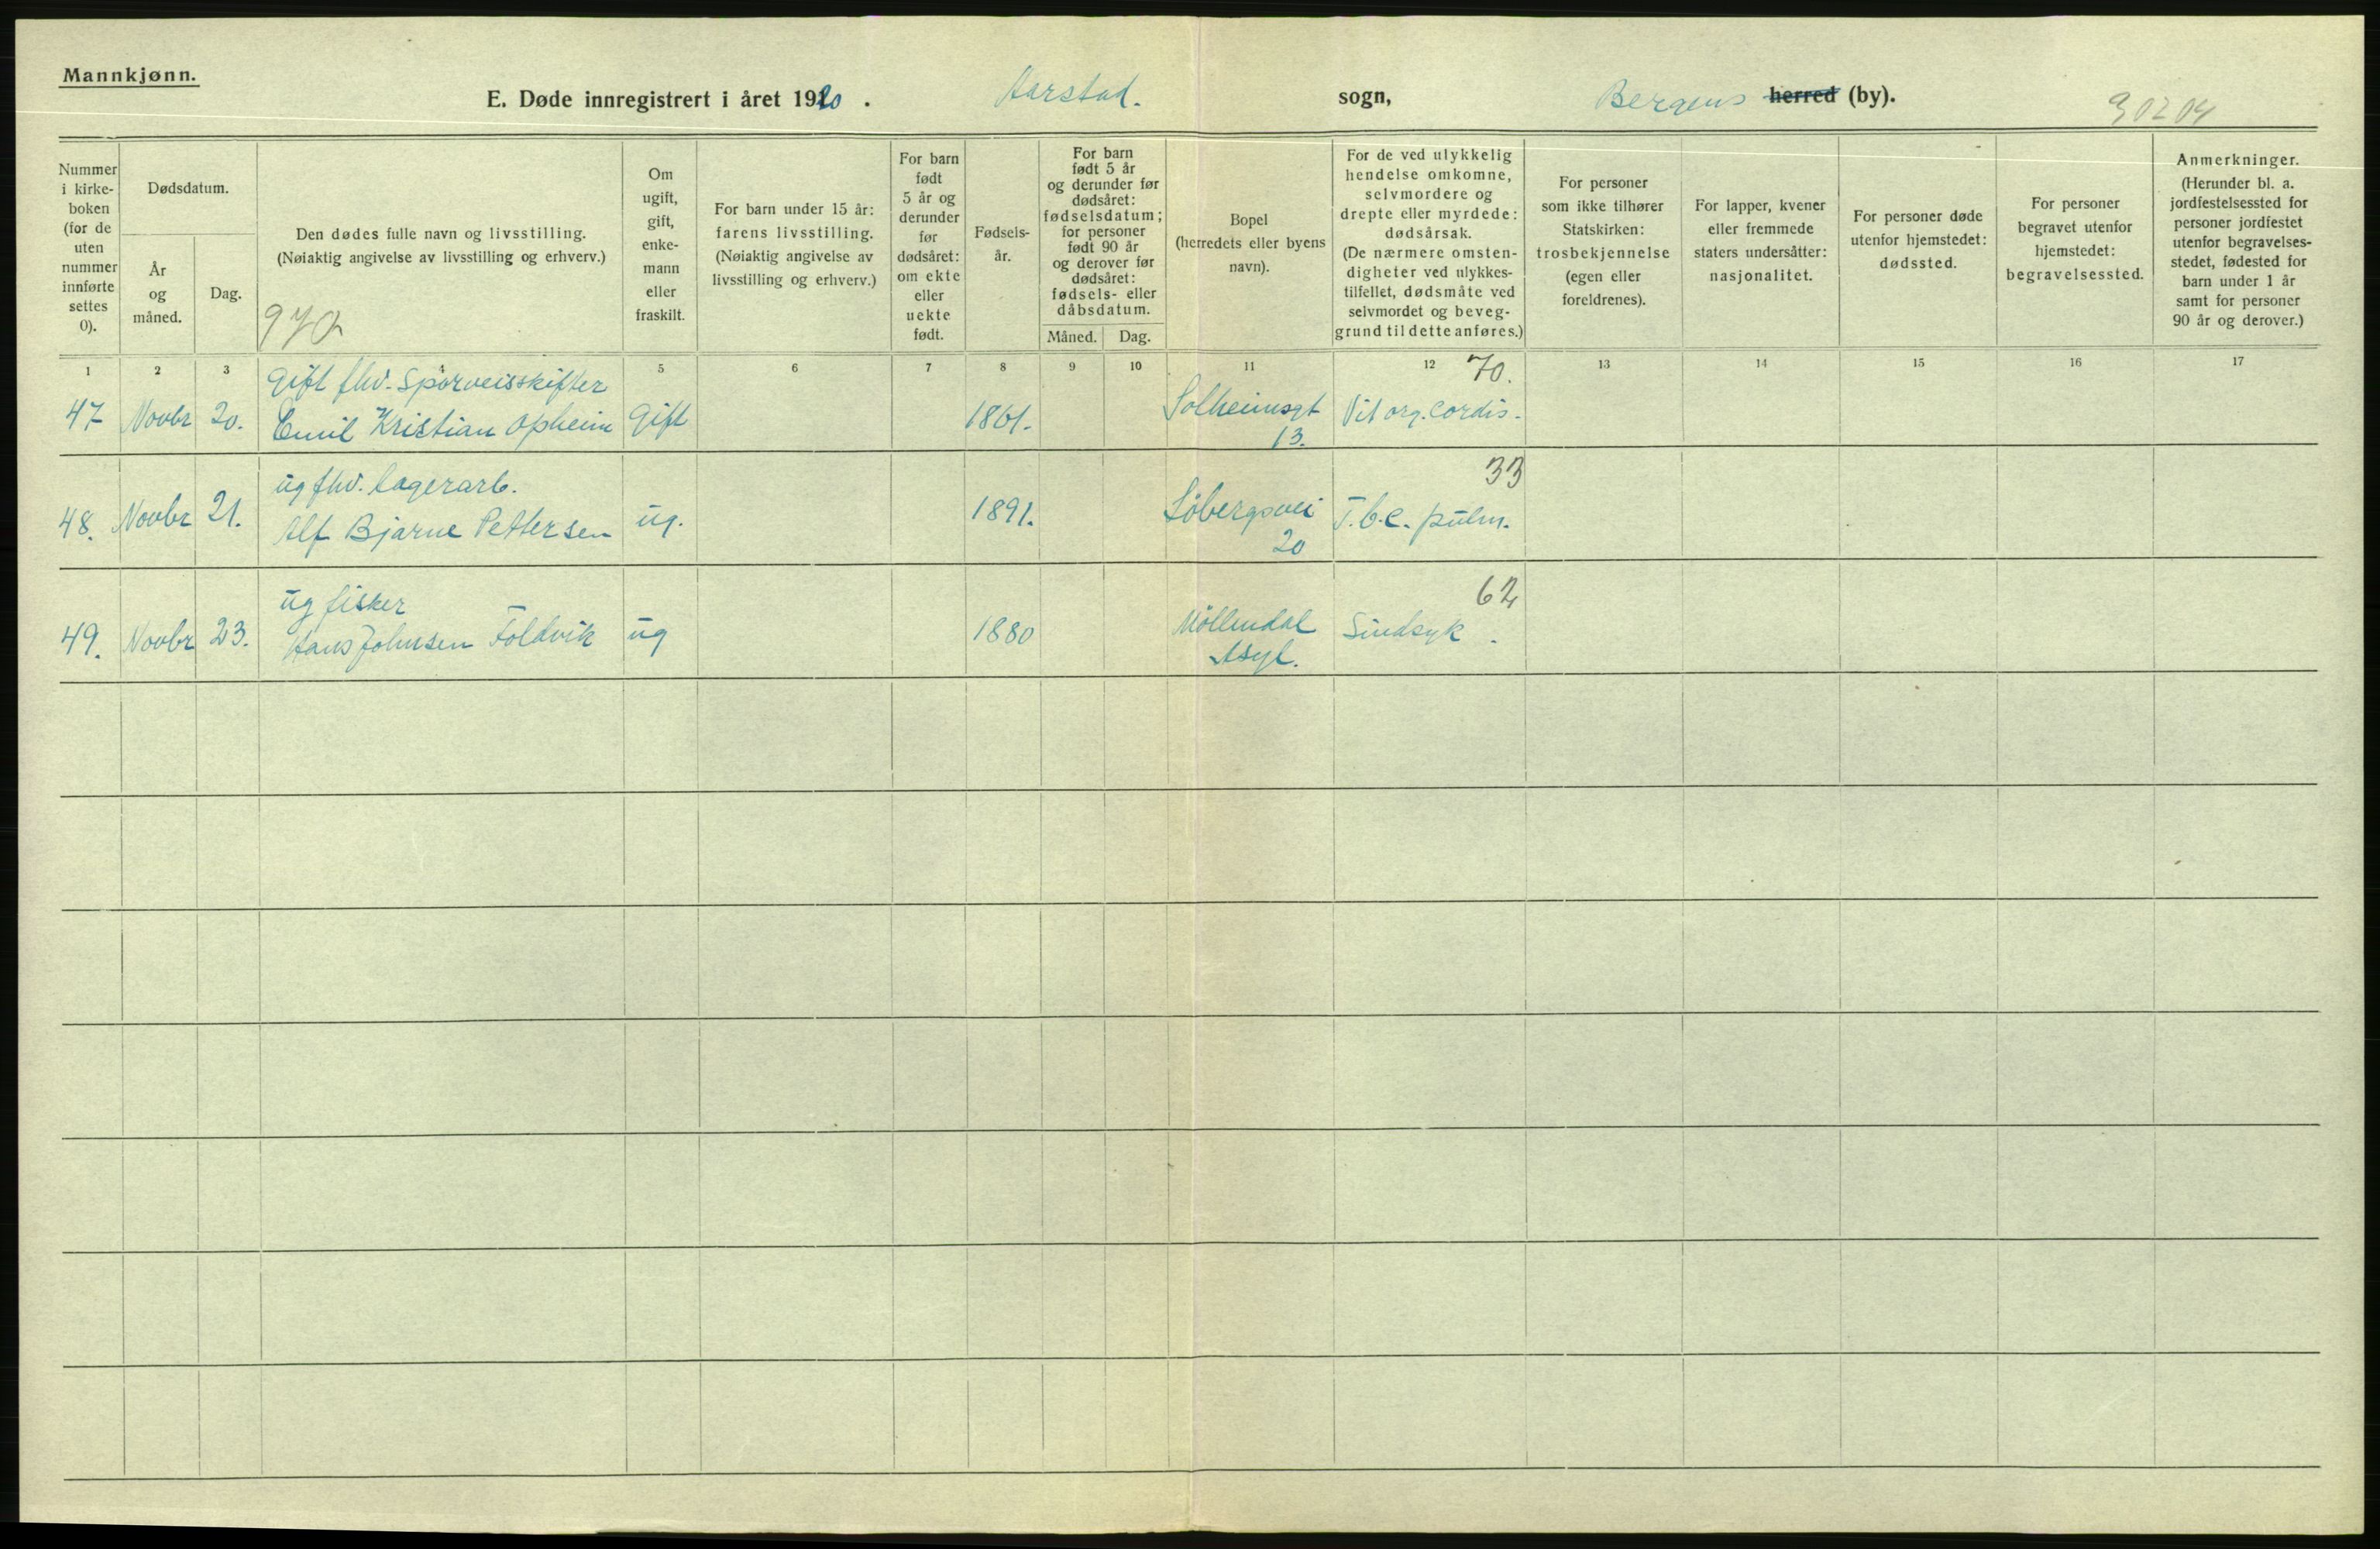 Mannkjønn.
E. Døde innregistrert i året 1920 . Aarstad. sogn, Bergens herred (by). 30204
Nummer
i kirke-
boken
(for de
uten
nummer
innførte
settes
0).
Dødsdatum.
År
og
måned.
Dag.
Den dødes fulle navn og livsstilling.
(Nøiaktig angivelse av livsstilling og erhverv.)
Om
ugift,
gift,
enke-
mann
eller
fraskilt.
For barn under 15 år:
farens livsstilling.
(Nøiaktig angivelse av
livsstilling og erhverv.)
For barn
født
5 år og
derunder
før
dødsåret:
om ekte
eller
uekte
født.
Fødsels-
år.
For barn
født 5 år
og derunder før
dødsåret:
fødselsdatum;
for personer
født 90 år
og derover før
dødsåret:
fødsels- eller
dåbsdatum.
Måned. Dag.
Bopel
(herredets eller byens
navn).
For de ved ulykkelig
hendelse omkomne,
selvmordere og
drepte eller myrdede:
dødsårsak.
(De nærmere omsten-
digheter ved ulykkes-
tilfellet, dødsmåte ved
selvmordet og beveg-
grund til dette anføres.)
For personer
som ikke tilhører
Statskirken:
trosbekjennelse
(egen eller
foreldrenes).
For lapper, kvener
eller fremmede
staters undersåtter:
nasjonalitet.
For personer døde
utenfor hjemstedet:
dødssted.
For personer
begravet utenfor
hjemstedet:
begravelsessted.
Anmerkninger.
(Herunder bl. a.
jordfestelsessted for
personer jordfestet
utenfor begravelses-
stedet, fødested for
barn under 1 år
samt for personer
90 år og derover.)
1 2 3 5 6 7 8 9 10 11 12 13 14 15 16 17
70.
gift fhv. Sporveisskifter
47 Novbr 20. Emil Kristian Opheim Gift 1861. Solheimsgt Vit org. cordis.
13.
33
ug fhv. lagerarb.
48. Novbr 21. Alf Bjarne Pettersen ug. 1891. Löbergsvei T.b.c. pulm.
20
62
ug fisker
49. Novbr 23. Hans Johnsen Foldvik ug 1880 Möllendal Sindsyk.
Asyl.